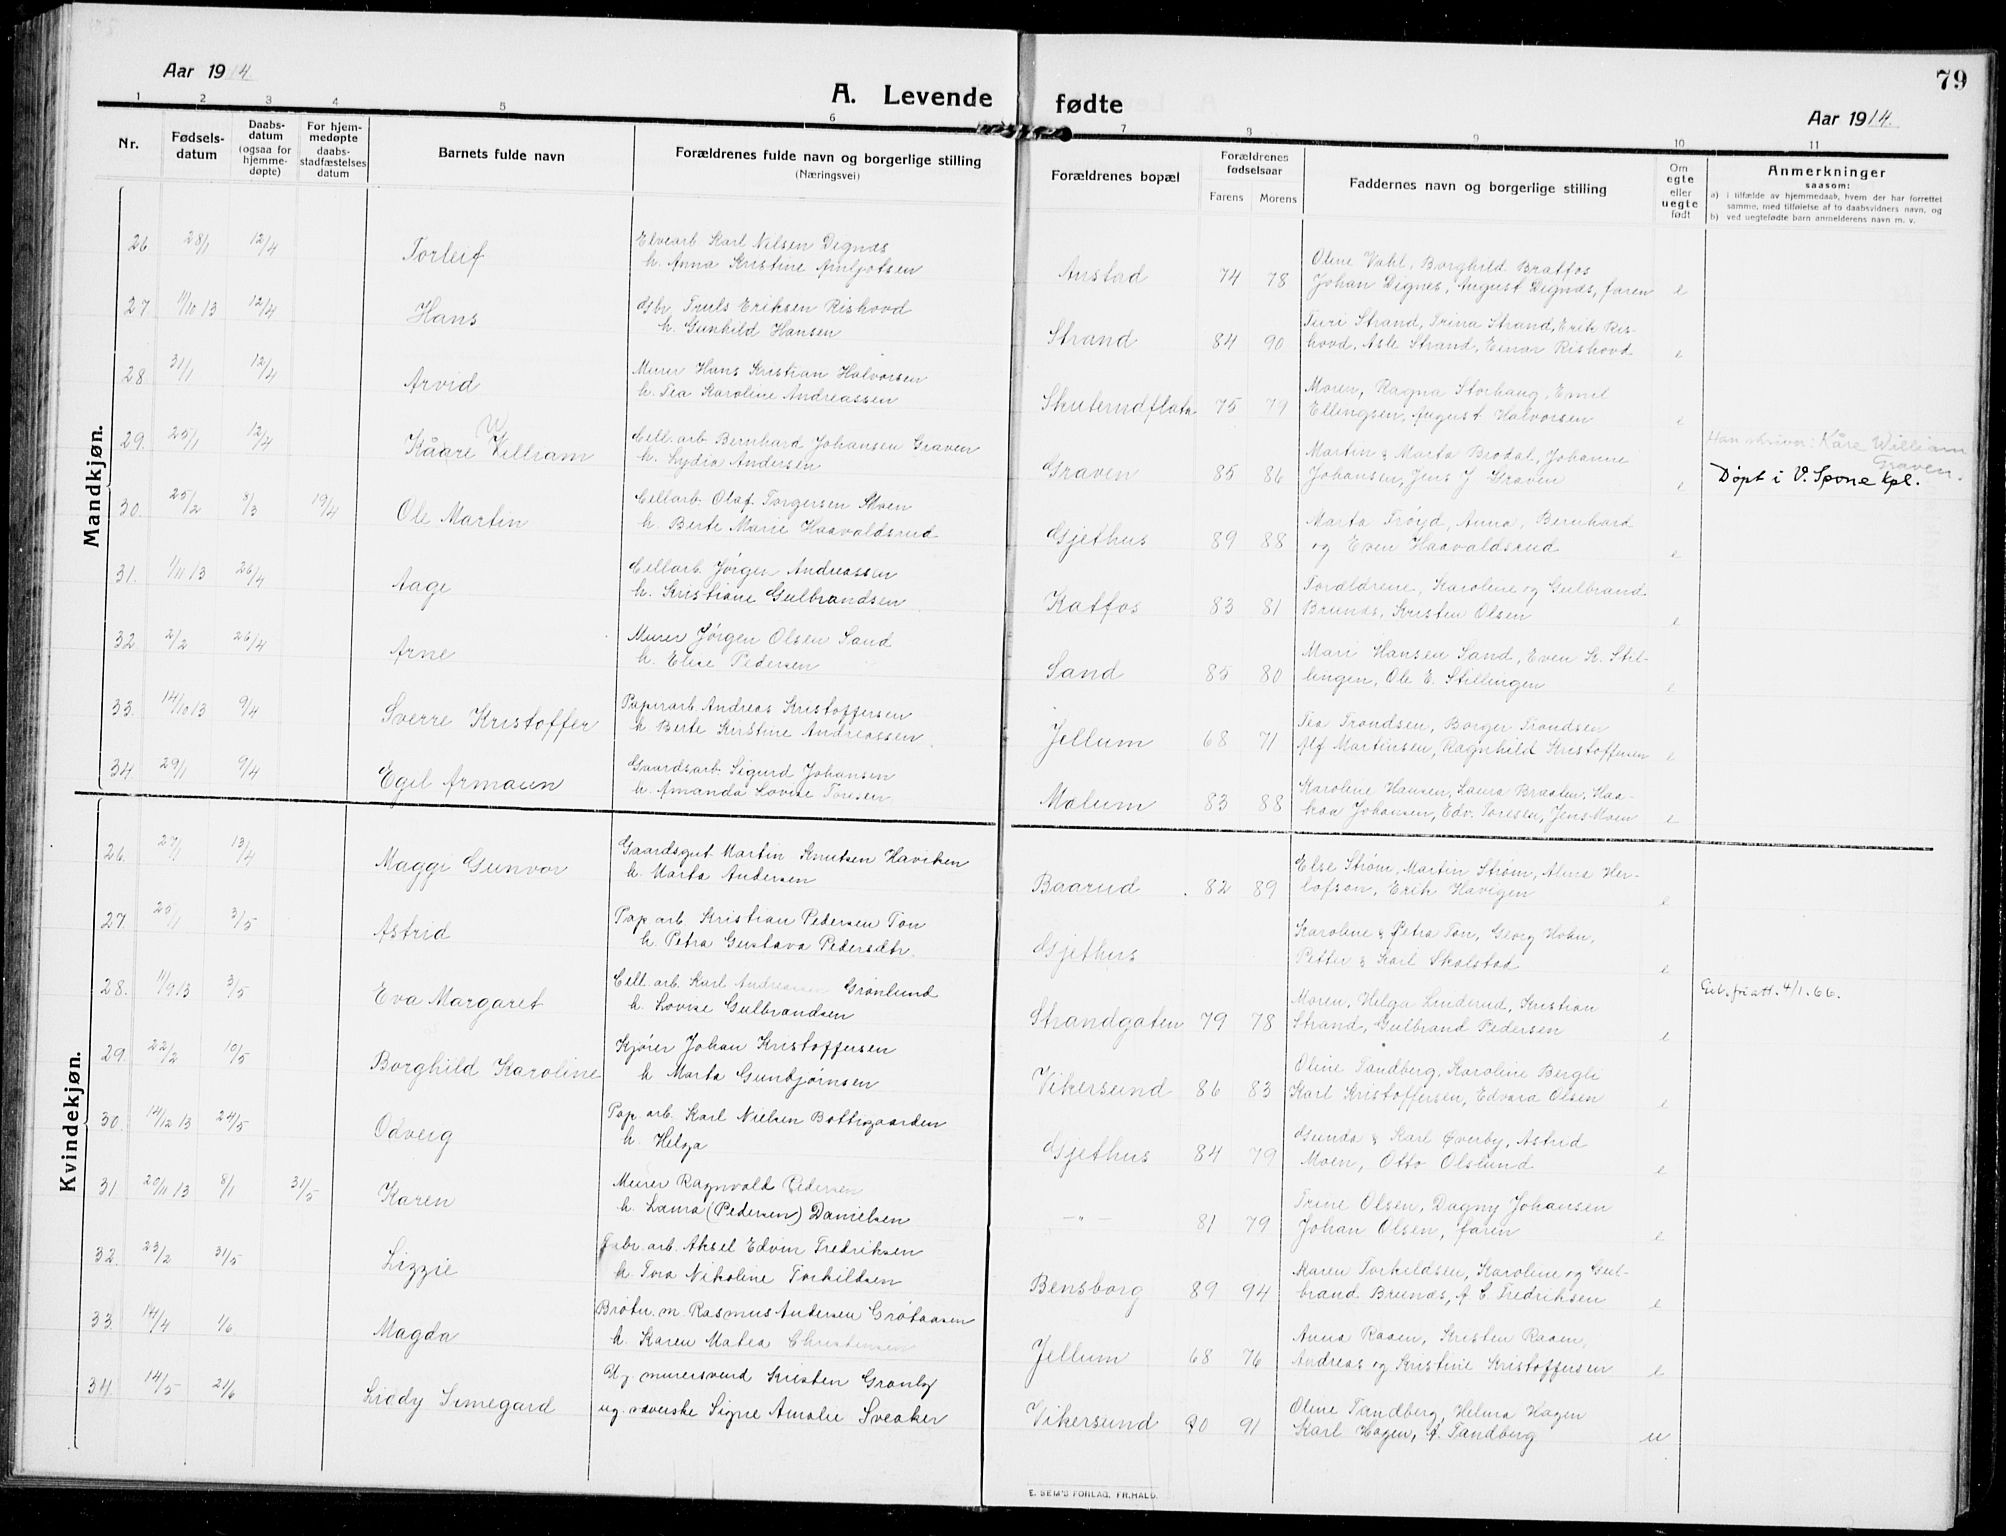 79
Aar 1914
A. Levende fødte
Aar 1914.
1 2 3 4 5 6 7 8 9 10 11
Nr.
Fødsels-
datum
Daabs-
datum
(ogsaa for
hjemme-
døpte)
For hjem-
medøpte
daabs-
stadfæstelses
datum
Barnets fulde navn
Forældrenes fulde navn og borgerlige stilling
(Næringsvei)
Forældrenes bopæl
Forældrenes
fødselsaar
Farens Morens
Faddernes navn og borgerlige stilling
Om
egte
eller
uegte
født
Anmerkninger
saasom:
a) i tilfælde av hjemmedaab, hvem der har forrettet
samme, med tilføielse af to daabsvidners navn, og
b) ved uegtefødte barn anmelderens navn m. v.
Mandkjøn.
26 28/1 12/4 Torleif
Elvearb Karl Nilsen Dignæs
h. Anna Kristine Arnljotsen
Anstad 74 78
Oline Vahl, Borghild Bratfos
Johan Dignes, August Dignæs, faren e
27 11/10 13 12/4 Hans
Gbr Truls Eriksen Rishovd
h. Gunhild Hansen
Strand 84 90
Turi Strand, Trina Strand, Erik Ris-
hovd, Asle Strand, Einar Rishovd e
28 31/1 12/4 Arvid
Murer Hans Kristian Halvorsen
h. Tea Karoline Andreassen
Skuterudflata 75 79
Moren, Ragna Storhaug, Emil
Ellingsen, August Halvorsen e
29. 25/1 12/4 Kåare William
W
Cell.arb Bernhard Johansen Graven
h. Lydia Andersen
Graven 85 86
Martin & Marta Brodal, Johanne
Johansen, Jens J Graven e
Han skriver: Kåre William
Graven.
Døpt i V. Spone kpl.
30. 25/2 8/3 19/4 Ole Martin
Cellarb. Olaf Torgersen Skoen
h. Berte Marie Haavaldsrud
Gjethus 89 88
Marta Trøyd, Anna, Bernhard
og Even Haavaldsrud e
31. 1/11 13 26/4 Aage
Cellarb Jørgen Andreassen
h. Kristiane Gulbrandsen
Katfos 83 81
Forældrene, Karoline og Gulbrand
Brunæs, Kristen Olsen e
32 2/2 26/4 Arne
Murer Jørgen Olsen Sand
h. Elise Pedersen
Sand 85 80
Mari Hansen Sand, Even H. Stil-
lingen, Ole E. Stillingen e
33. 14/10 13 9/4 Sverre Kristoffer
Papirarb Andreas Kristoffersen
h Berte Kirstine Andreassen
Jellum 68 71
Tea Trondsen, Borger Trondsen
Alf Martinsen, Ragnhild Kristoffersen e
34. 29/1 9/4 Egil Armann
Gaardsarb Sigurd Johansen
h. Amanda Lovise Toresen
Mælum 83 88
Karoline Hansen, Laura Braaten, Haa-
kaa Johansen, Edv. Toresen, Jens Moen e
Kvindekjøn.
26. 27/1 13/4 Maggi Gunvor
Gaardsgut Martin Knutsen Haviken
h. Marta Andersen
Baarud 82 89
Else Strøm, Martin Strøm, Alma Her-
lofson, Erik Havigen e
27. 20/1 3/5 Astrid
Pap. arb. Kristian Pedersen Ton
h. Petra Gustava Pedersdtr.
Gjethus
Karoline & Petra Ton, Georg Holm,
Petter & Karl Skolstad e
28. 11/9 13 3/5 Eva Margaret
Cell. arb. Karl Andreassen Grønlund
h. Lovise Gulbrandsen
Strandgaten 79 78
Moren, Helga Linderud, Kristian
Strand, Gulbrand Pedersen e
Utb. fri att. 4/1. 66.
29. 22/2 10/5 Borghild Karoline
Kjører Johan Kristoffersen
h Marta Gunbjørnsen
Vikersund 86 83
Oline Tandberg, Karoline Bergli
Karl Kristoffersen, Edvard Olsen e
30. 14/12 13 24/5 Odveig
Pap. arb. Karl Nielsen Bottegaarden
h. Helga
Gjethus 84 79
Gunda & Karl Øverby, Astrid
Moen, Otto Olslund e
31 20/11 13 8/1 31/5 Karen
Murer Ragnvald Pedersen
h. Laura (Pedersen) Danielsen
— " — 81 79
Trine Olsen, Dagny Johansen
Johan Olsen, faren e
32. 23/2 31/5 Lizzie
Fabr. arb. Aksel Edvin Fredriksen
h Tora Nikoline Torkildsen
Bensborg 89 94
Maren Torkildsen, Karoline og Gul-
brand Brunæs, A C Fredriksen e
33 14/4 1/6 Magda
Brøtn. m. Rasmus Andersen Grötaasen
h. Karen Matea Christensen
Jellum 68 76
Anna Raaen, Kristen Raaen,
Andreas og Kristine Kristoffersen e
34 14/5 21/6 Liddy Simegard
Ug. murersvend Kristen Granby
ug. væverske Signe Amalie Sveaker
Vikersund 90 91
Oline Tandberg, Helma Hagen
Karl Hagen, A. Tandberg u
E. SEM'S FORLAG, FR.HALD.